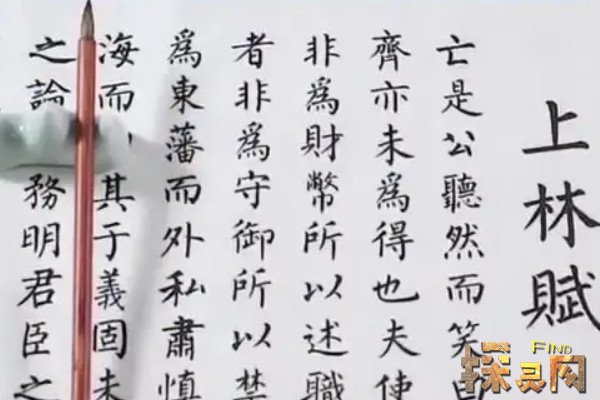 上林賦
亡是公聽然而笑曰
齊亦未爲得也夫使
非爲財幣所以述職
者非爲守御所以禁
爲東藩而外私肅慎
海而其于義固未
之論務明君臣之
FIND
探灵网